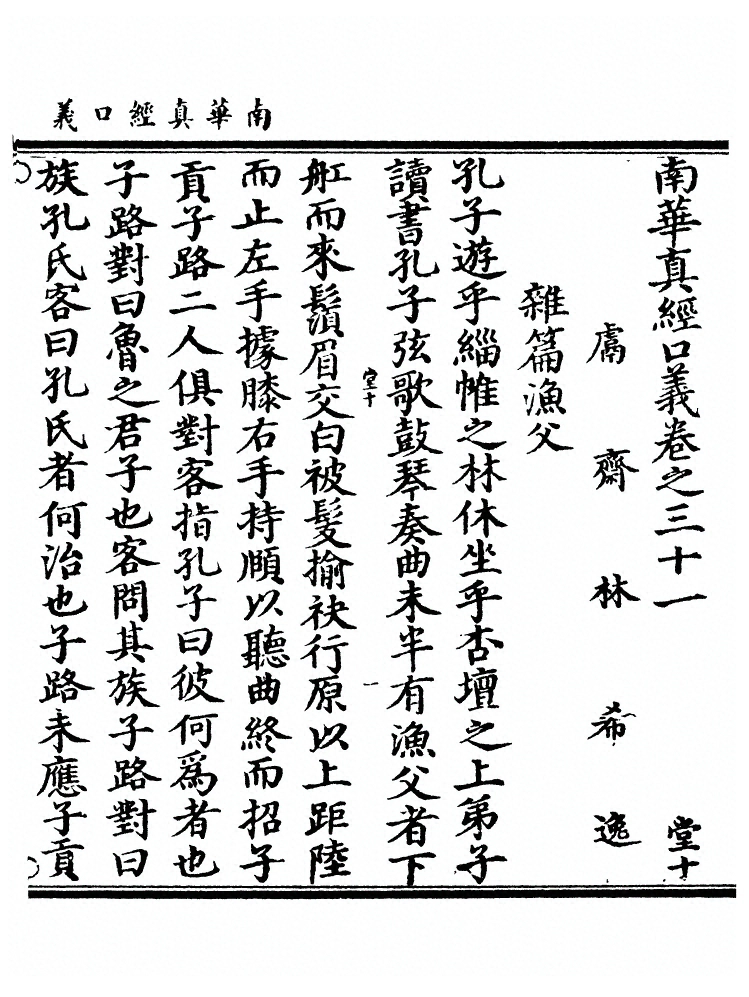 南華真經口義
南華真經口義卷之三十一 堂十
鬳齋林希逸
雜篇漁父
孔子遊乎緇帷之林休坐乎杏壇之上弟子
讀書孔子弦歌鼓琴奏曲未半有漁父者下
堂十 一
舡而來鬚眉交白被髮揄袂行原以上距陸
而止左手據膝右手持頤以聽曲終而招子
貢子路二人俱對客指孔子曰彼何爲者也
子路對曰魯之君子也客問其族子路對曰
族孔氏客曰孔氏者何治也子路未應子貢